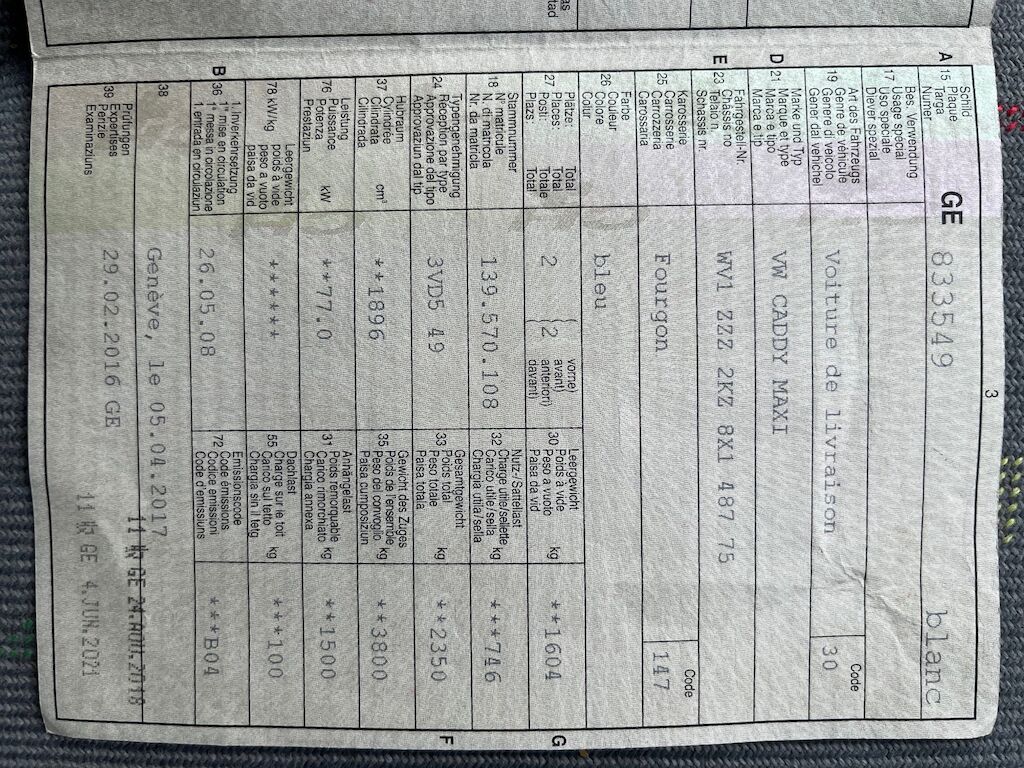 3
A 15 Schild
Plaque
Targa
Numer
GE 833549 blanc
17 Bes. Verwendung
Usage spécial
Uso speciale
Diever spezial
19 Art des Fahrzeugs
Genre de véhicule
Genere di veicolo
Gener dal vehichel
Voiture de livraison
Code
30
D 21 Marke und Typ
Marque et type
Marca e tipo
Marca e tip
VW CADDY MAXI
E 23 Fahrgestell-Nr.
Châssis no
Telaio n.
Schassis nr.
WV1 ZZZ 2KZ 8X1 487 75
25 Karosserie
Carrosserie
Carrozzeria
Carrossaria
Fourgon
Code
147
26 Farbe
Couleur
Colore
Colur
bleu
27 Plätze: Total
Places: Total
Posti: Totale
Plazs: Total
2
2
vorne)
avant)
anteriori)
davant)
30 Leergewicht
Poids à vide
Peso a vuoto
Paisa da vid
kg
**1604
G
18 Stammnummer
N° matricule
N. di matricola
Nr. da matricla
139.570.108
32 Nutz-/Sattellast
Charge utile/sellette
Carico utile/sella
Chargia utila/sella
kg
***746
24 Typengenehmigung
Réception par type
Approvazione del tipo
Approvaziun dal tip
3VD5 49
33 Gesamtgewicht
Poids total
Peso totale
Paisa totala
kg
**2350
F
37 Hubraum
Cylindrée
Cilindrata
Cilindrada
cm³
**1896
35 Gewicht des Zuges
Poids de l'ensemble
Peso del convoglio
Paisa cumposiziun
kg
**3800
76 Leistung
Puissance
Potenza
Prestaziun
kW
**77.0
31 Anhängelast
Poids remorquable
Carico rimorchiato
Chargia annexa
kg
**1500
78 kW/kg
Leergewicht
poids à vide
peso a vuoto
paisa da vid
******
55 Dachlast
Charge sur le toit
Carico sul tetto
Chargia sin il tetg
kg
***100
B 36 1. Inverkehrsetzung
1re mise en circulation
1a messa in circolazione
1. entrada en circulaziun
26.05.08
72 Emissionscode
Code émissions
Codice emissioni
Code d'emissiuns
***B04
38
Genève, le 05.04.2017
39 Prüfungen
Expertises
Perizie
Examinaziuns
29.02.2016 GE
GE 24.AOU.2018
GE 4.JUN.2021